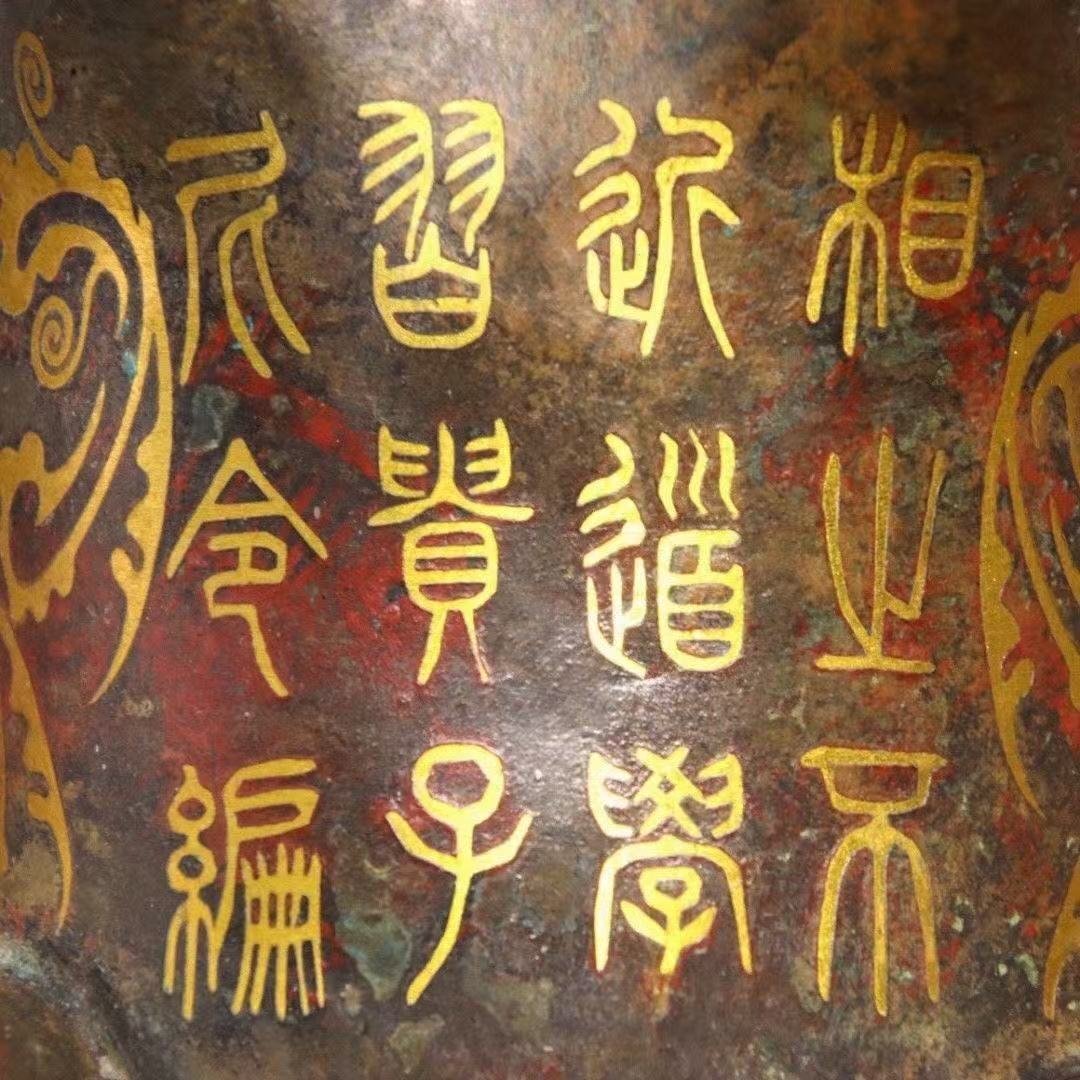 相之不
近道學
習貴子
尼令編